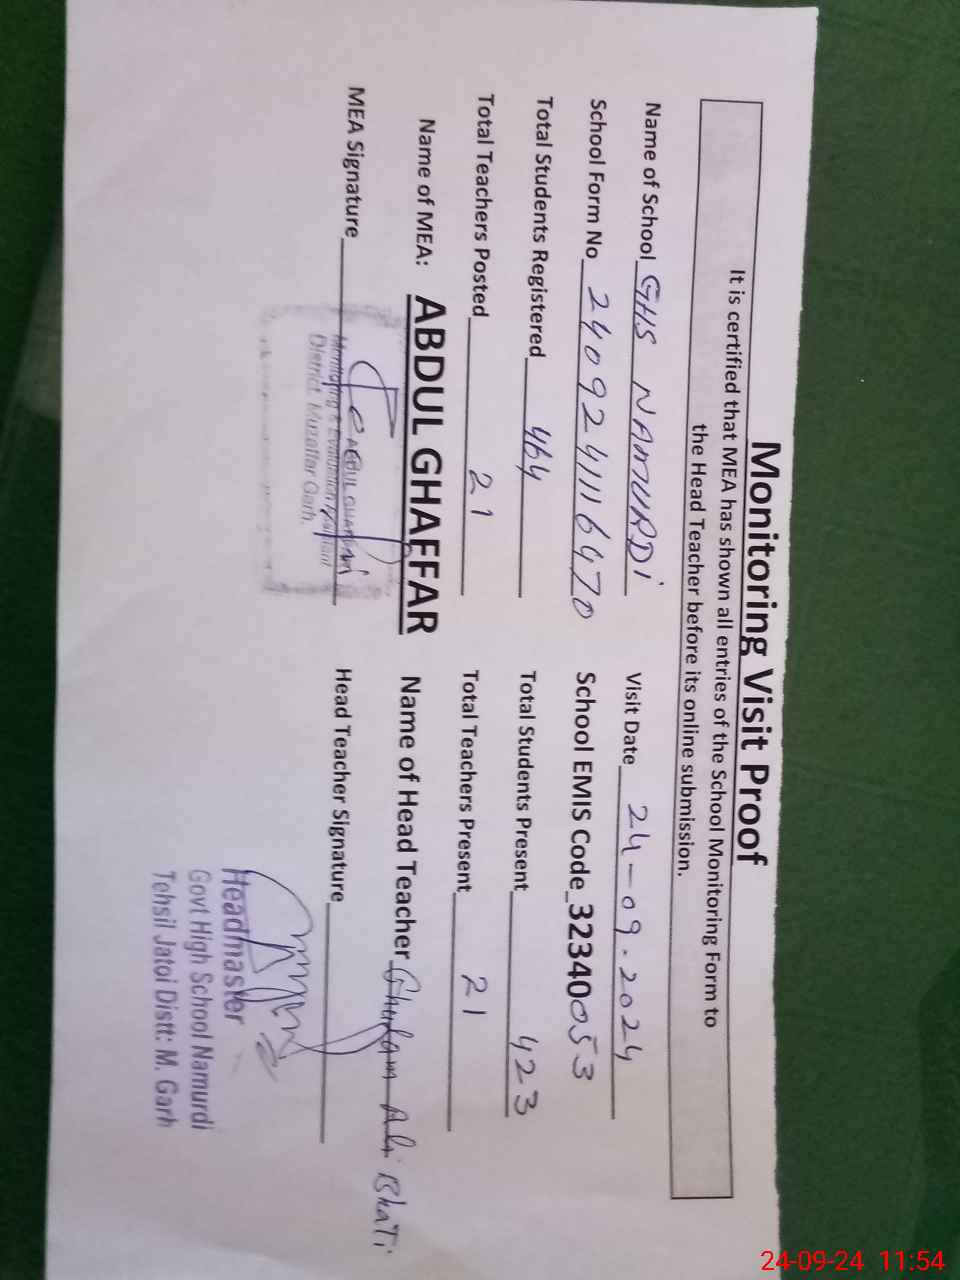 Monitoring Visit Proof
It is certified that MEA has shown all entries of the School Monitoring Form to
the Head Teacher before its online submission.
Name of School GHS NAMURDi Visit Date 24-09.2024
School Form No 24092411116470 School EMIS Code 32340053
Total Students Registered 464 Total Students Present 423
Total Teachers Posted 21 Total Teachers Present 21
Name of MEA: ABDUL GHAFFAR Name of Head Teacher Ghulam Ali Bhati
MEA Signature Head Teacher Signature
ABDUL GHAFFAR
Monitoring & Evaluation Assistant
District. Muzaffar Garh.
Headmaster
Govt High School Namurdi
Tehsil Jatoi Distt: M. Garh
24-09-24 11:54